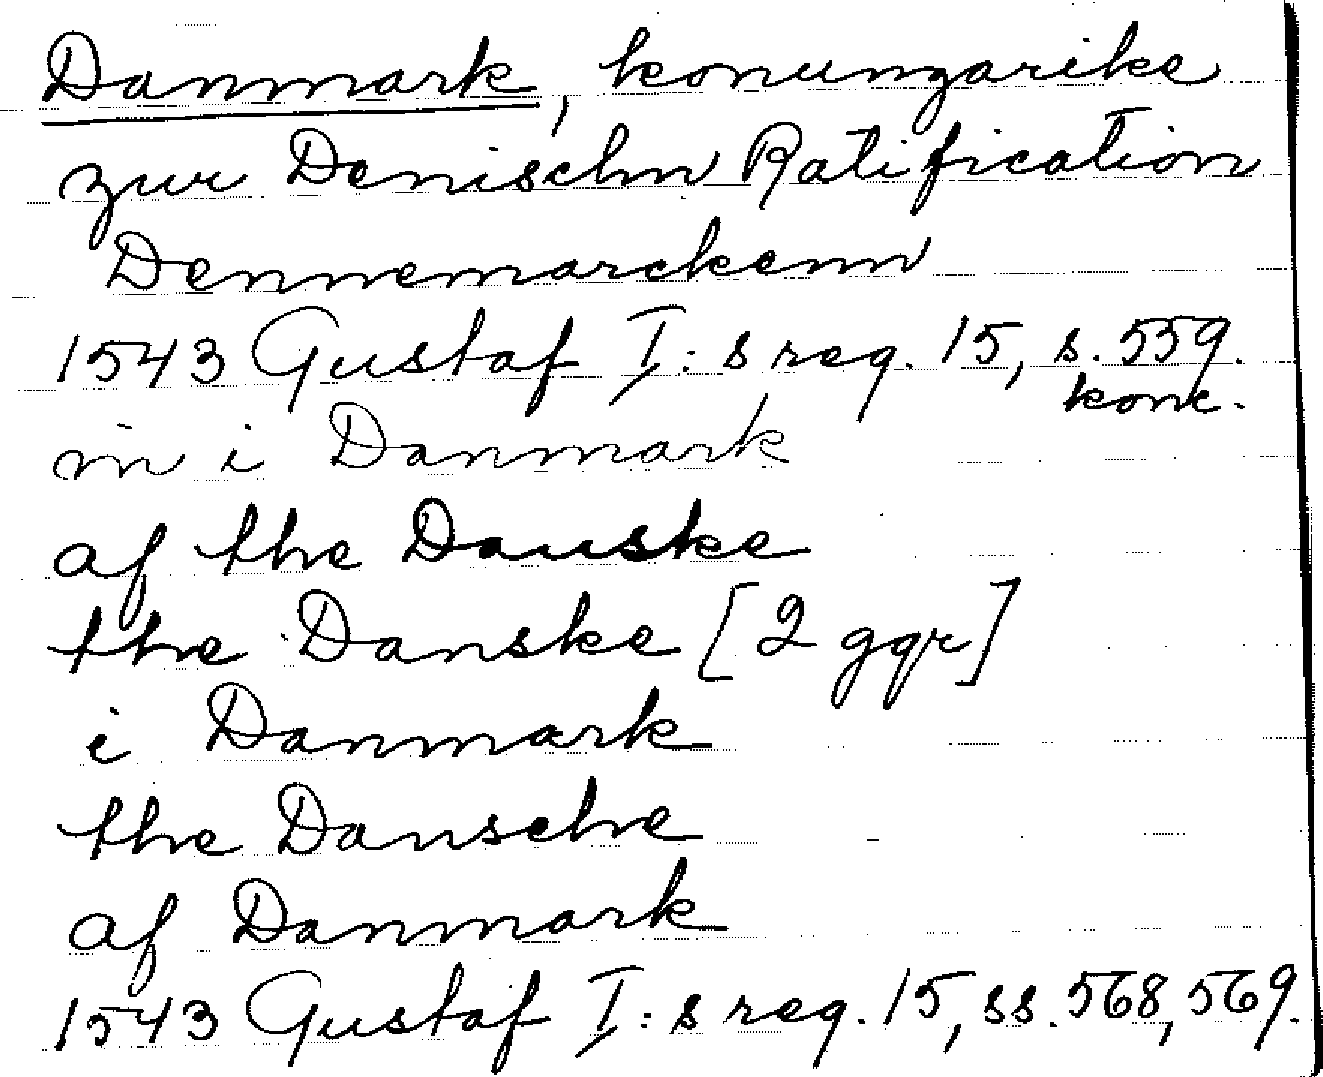 Danmark, konungarike
zur Denischn Ratification
Dennemarckenn
1543 Gustaf I:s reg. 15, s. 559.
konc.
in i Danmark
af the Danske
the Danske [2 ggr]
i Danmark
the Dansche
af Danmark
1543 Gustaf I:s reg. 15, ss. 568, 569.